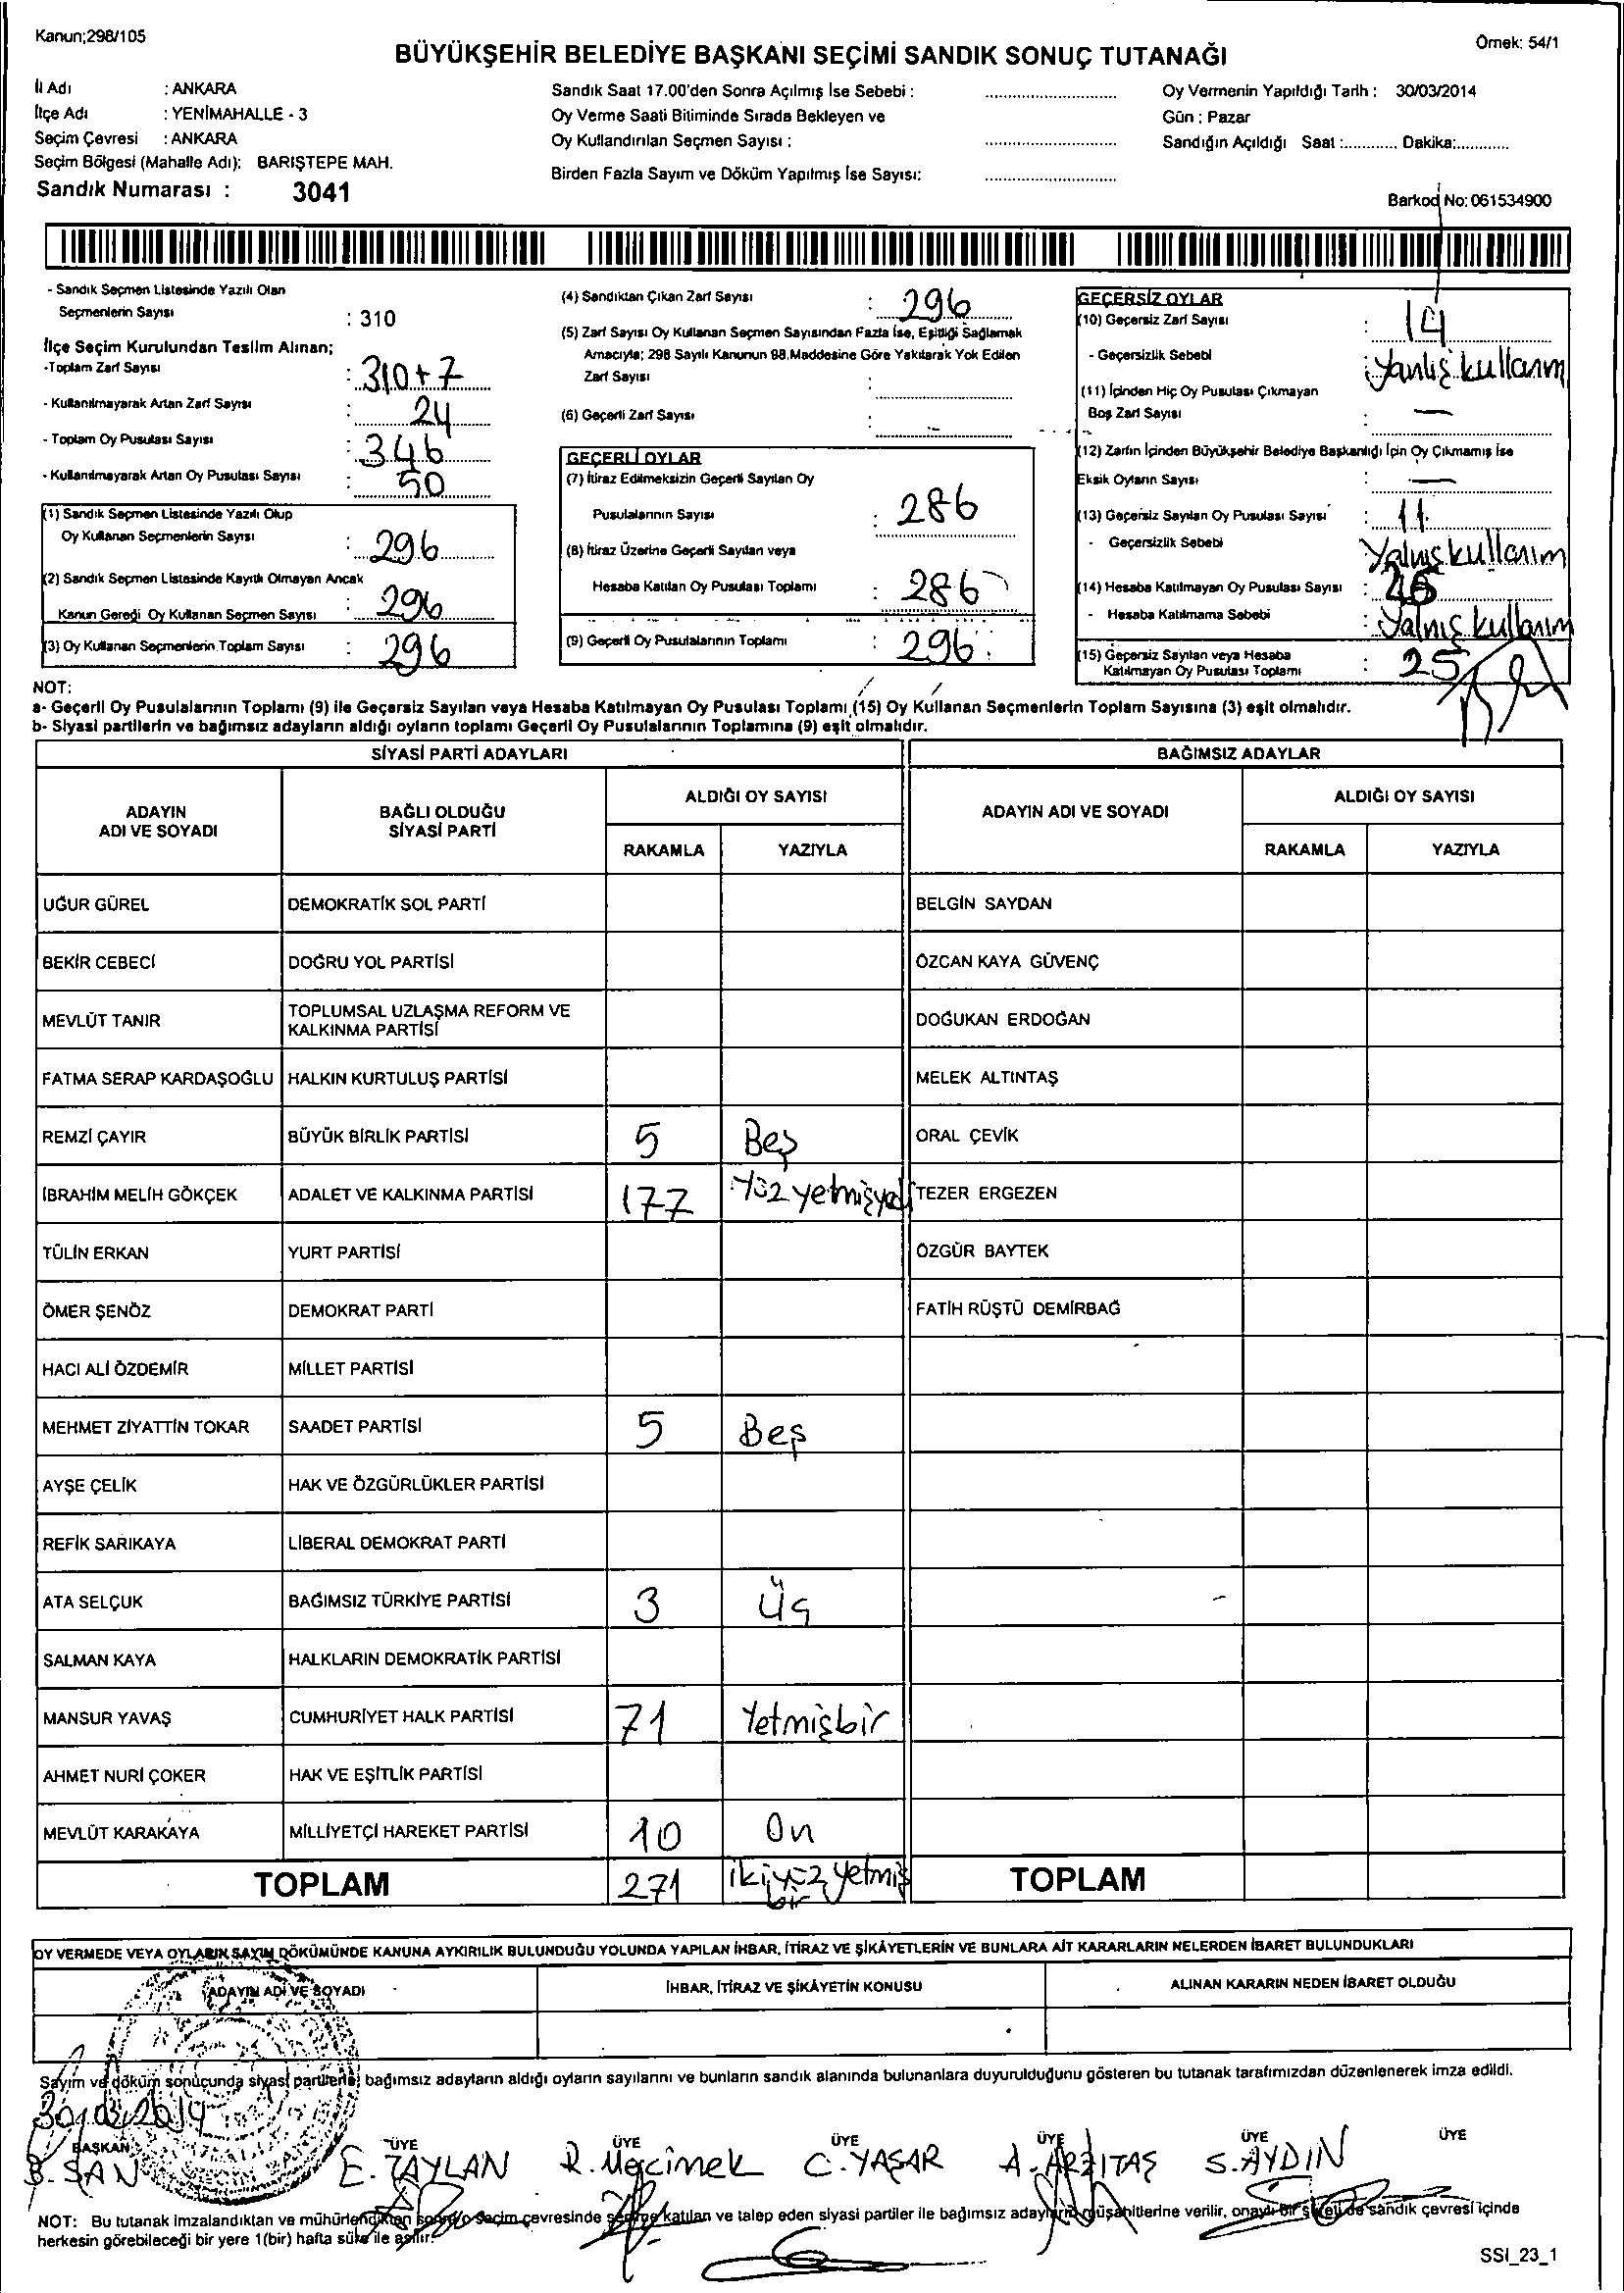 Kanun;298/105
Örnek: 54/1
BÜYÜKŞEHİR BELEDİYE BAŞKANI SEÇİMİ SANDIK SONUÇ TUTANAĞI
İl Adı : ANKARA
İlçe Adı : YENİMAHALLE - 3
Seçim Çevresi : ANKARA
Seçim Bölgesi (Mahalle Adı): BARIŞTEPE MAH.
Sandık Numarası : 3041
Sandık Saat 17.00'den Sonra Açılmış İse Sebebi :
Oy Verme Saati Bitiminde Sırada Bekleyen ve
Oy Kullandırılan Seçmen Sayısı :
Birden Fazla Sayım ve Döküm Yapılmış İse Sayısı:
Oy Vermenin Yapıldığı Tarih : 30/03/2014
Gün : Pazar
Sandığın Açıldığı Saat :............ Dakika:............
Barkod No: 061534900
- Sandık Seçmen Listesinde Yazılı Olan
Seçmenlerin Sayısı : 310
İlçe Seçim Kurulundan Teslim Alınan;
-Toplam Zarf Sayısı : 310+7
- Kullanılmayarak Artan Zarf Sayısı : 24
- Toplam Oy Pusulası Sayısı : 346
- Kullanılmayarak Artan Oy Pusulası Sayısı : 50
(1) Sandık Seçmen Listesinde Yazılı Olup
Oy Kullanan Seçmenlerin Sayısı : 296
(2) Sandık Seçmen Listesinde Kayıtlı Olmayan Ancak
Kanun Gereği Oy Kullanan Seçmen Sayısı : 296
(3) Oy Kullanan Seçmenlerin Toplam Sayısı : 296
(4) Sandıktan Çıkan Zarf Sayısı : 296
(5) Zarf Sayısı Oy Kullanan Seçmen Sayısından Fazla İse, Eşitliği Sağlamak
Amacıyla; 298 Sayılı Kanunun 98.Maddesine Göre Yakılarak Yok Edilen
Zarf Sayısı :
(6) Geçerli Zarf Sayısı :
GEÇERLİ OYLAR
(7) İtiraz Edilmeksizin Geçerli Sayılan Oy
Pusulalarının Sayısı : 286
(8) İtiraz Üzerine Geçerli Sayılan veya
Hesaba Katılan Oy Pusulası Toplamı : 286
(9) Geçerli Oy Pusulalarının Toplamı : 296
GEÇERSİZ OYLAR
(10) Geçersiz Zarf Sayısı : 14
- Geçersizlik Sebebi : Yanlış kullanım
(11) İçinden Hiç Oy Pusulası Çıkmayan
Boş Zarf Sayısı : —
(12) Zarfın İçinden Büyükşehir Belediye Başkanlığı İçin Oy Çıkmamış İse
Eksik Oyların Sayısı : —
(13) Geçersiz Sayılan Oy Pusulası Sayısı : 11
- Geçersizlik Sebebi Yalnış kullanım
(14) Hesaba Katılmayan Oy Pusulası Sayısı :
- Hesaba Katılmama Sebebi : Yalnış kullanım
(15) Geçersiz Sayılan veya Hesaba
Katılmayan Oy Pusulası Toplamı : 25
NOT:
a- Geçerli Oy Pusulalarının Toplamı (9) ile Geçersiz Sayılan veya Hesaba Katılmayan Oy Pusulası Toplamı (15) Oy Kullanan Seçmenlerin Toplam Sayısına (3) eşit olmalıdır.
b- Siyasi partilerin ve bağımsız adayların aldığı oyların toplamı Geçerli Oy Pusulalarının Toplamına (9) eşit olmalıdır.
SİYASİ PARTİ ADAYLARI BAĞIMSIZ ADAYLAR
ADAYIN ADI VE SOYADI BAĞLI OLDUĞU SİYASİ PARTİ ALDIĞI OY SAYISI ADAYIN ADI VE SOYADI ALDIĞI OY SAYISI
RAKAMLA YAZIYLA RAKAMLA YAZIYLA
UĞUR GÜREL DEMOKRATİK SOL PARTİ BELGİN SAYDAN
BEKİR CEBECİ DOĞRU YOL PARTİSİ ÖZCAN KAYA GÜVENÇ
MEVLÜT TANIR TOPLUMSAL UZLAŞMA REFORM VE KALKINMA PARTİSİ DOĞUKAN ERDOĞAN
FATMA SERAP KARDAŞOĞLU HALKIN KURTULUŞ PARTİSİ MELEK ALTINTAŞ
REMZİ ÇAYIR BÜYÜK BİRLİK PARTİSİ 5 Beş ORAL ÇEVİK
İBRAHİM MELİH GÖKÇEK ADALET VE KALKINMA PARTİSİ 177 Yüzyetmişyedi TEZER ERGEZEN
TÜLİN ERKAN YURT PARTİSİ ÖZGÜR BAYTEK
ÖMER ŞENÖZ DEMOKRAT PARTİ FATİH RÜŞTÜ DEMİRBAĞ
HACI ALİ ÖZDEMİR MİLLET PARTİSİ
MEHMET ZİYATTİN TOKAR SAADET PARTİSİ 5 Beş
AYŞE ÇELİK HAK VE ÖZGÜRLÜKLER PARTİSİ
REFİK SARIKAYA LİBERAL DEMOKRAT PARTİ
ATA SELÇUK BAĞIMSIZ TÜRKİYE PARTİSİ 3 Üç
SALMAN KAYA HALKLARIN DEMOKRATİK PARTİSİ
MANSUR YAVAŞ CUMHURİYET HALK PARTİSİ 71 Yetmişbir
AHMET NURİ ÇOKER HAK VE EŞİTLİK PARTİSİ
MEVLÜT KARAKAYA MİLLİYETÇİ HAREKET PARTİSİ 10 On
TOPLAM 271 ikiyüzyetmiş bir TOPLAM
OY VERMEDE VEYA OYLARIN SAYIM DÖKÜMÜNDE KANUNA AYKIRILIK BULUNDUĞU YOLUNDA YAPILAN İHBAR, İTİRAZ VE ŞİKÂYETLERİN VE BUNLARA AİT KARARLARIN NELERDEN İBARET BULUNDUKLARI
ADAYIN ADI VE SOYADI İHBAR, İTİRAZ VE ŞİKÂYETİN KONUSU ALINAN KARARIN NEDEN İBARET OLDUĞU
Sayım ve döküm sonucunda siyasi partilerle, bağımsız adayların aldığı oyların sayılarını ve bunların sandık alanında bulunanlara duyurulduğunu gösteren bu tutanak tarafımızdan düzenlenerek imza edildi.
30/03/2014
BAŞKAN ÜYE ÜYE ÜYE ÜYE ÜYE ÜYE
B. SAN E. TAYLAN R. Mercimek C. YAŞAR A. ARZITAŞ S. AYDIN
NOT: Bu tutanak imzalandıktan ve mühürlendikten sonra, o seçim çevresinde seçime katılan ve talep eden siyasi partiler ile bağımsız adayların müşahitlerine verilir, onaylı bir sureti de sandık çevresi içinde
herkesin görebileceği bir yere 1(bir) hafta süre ile asılır.
SSI_23_1